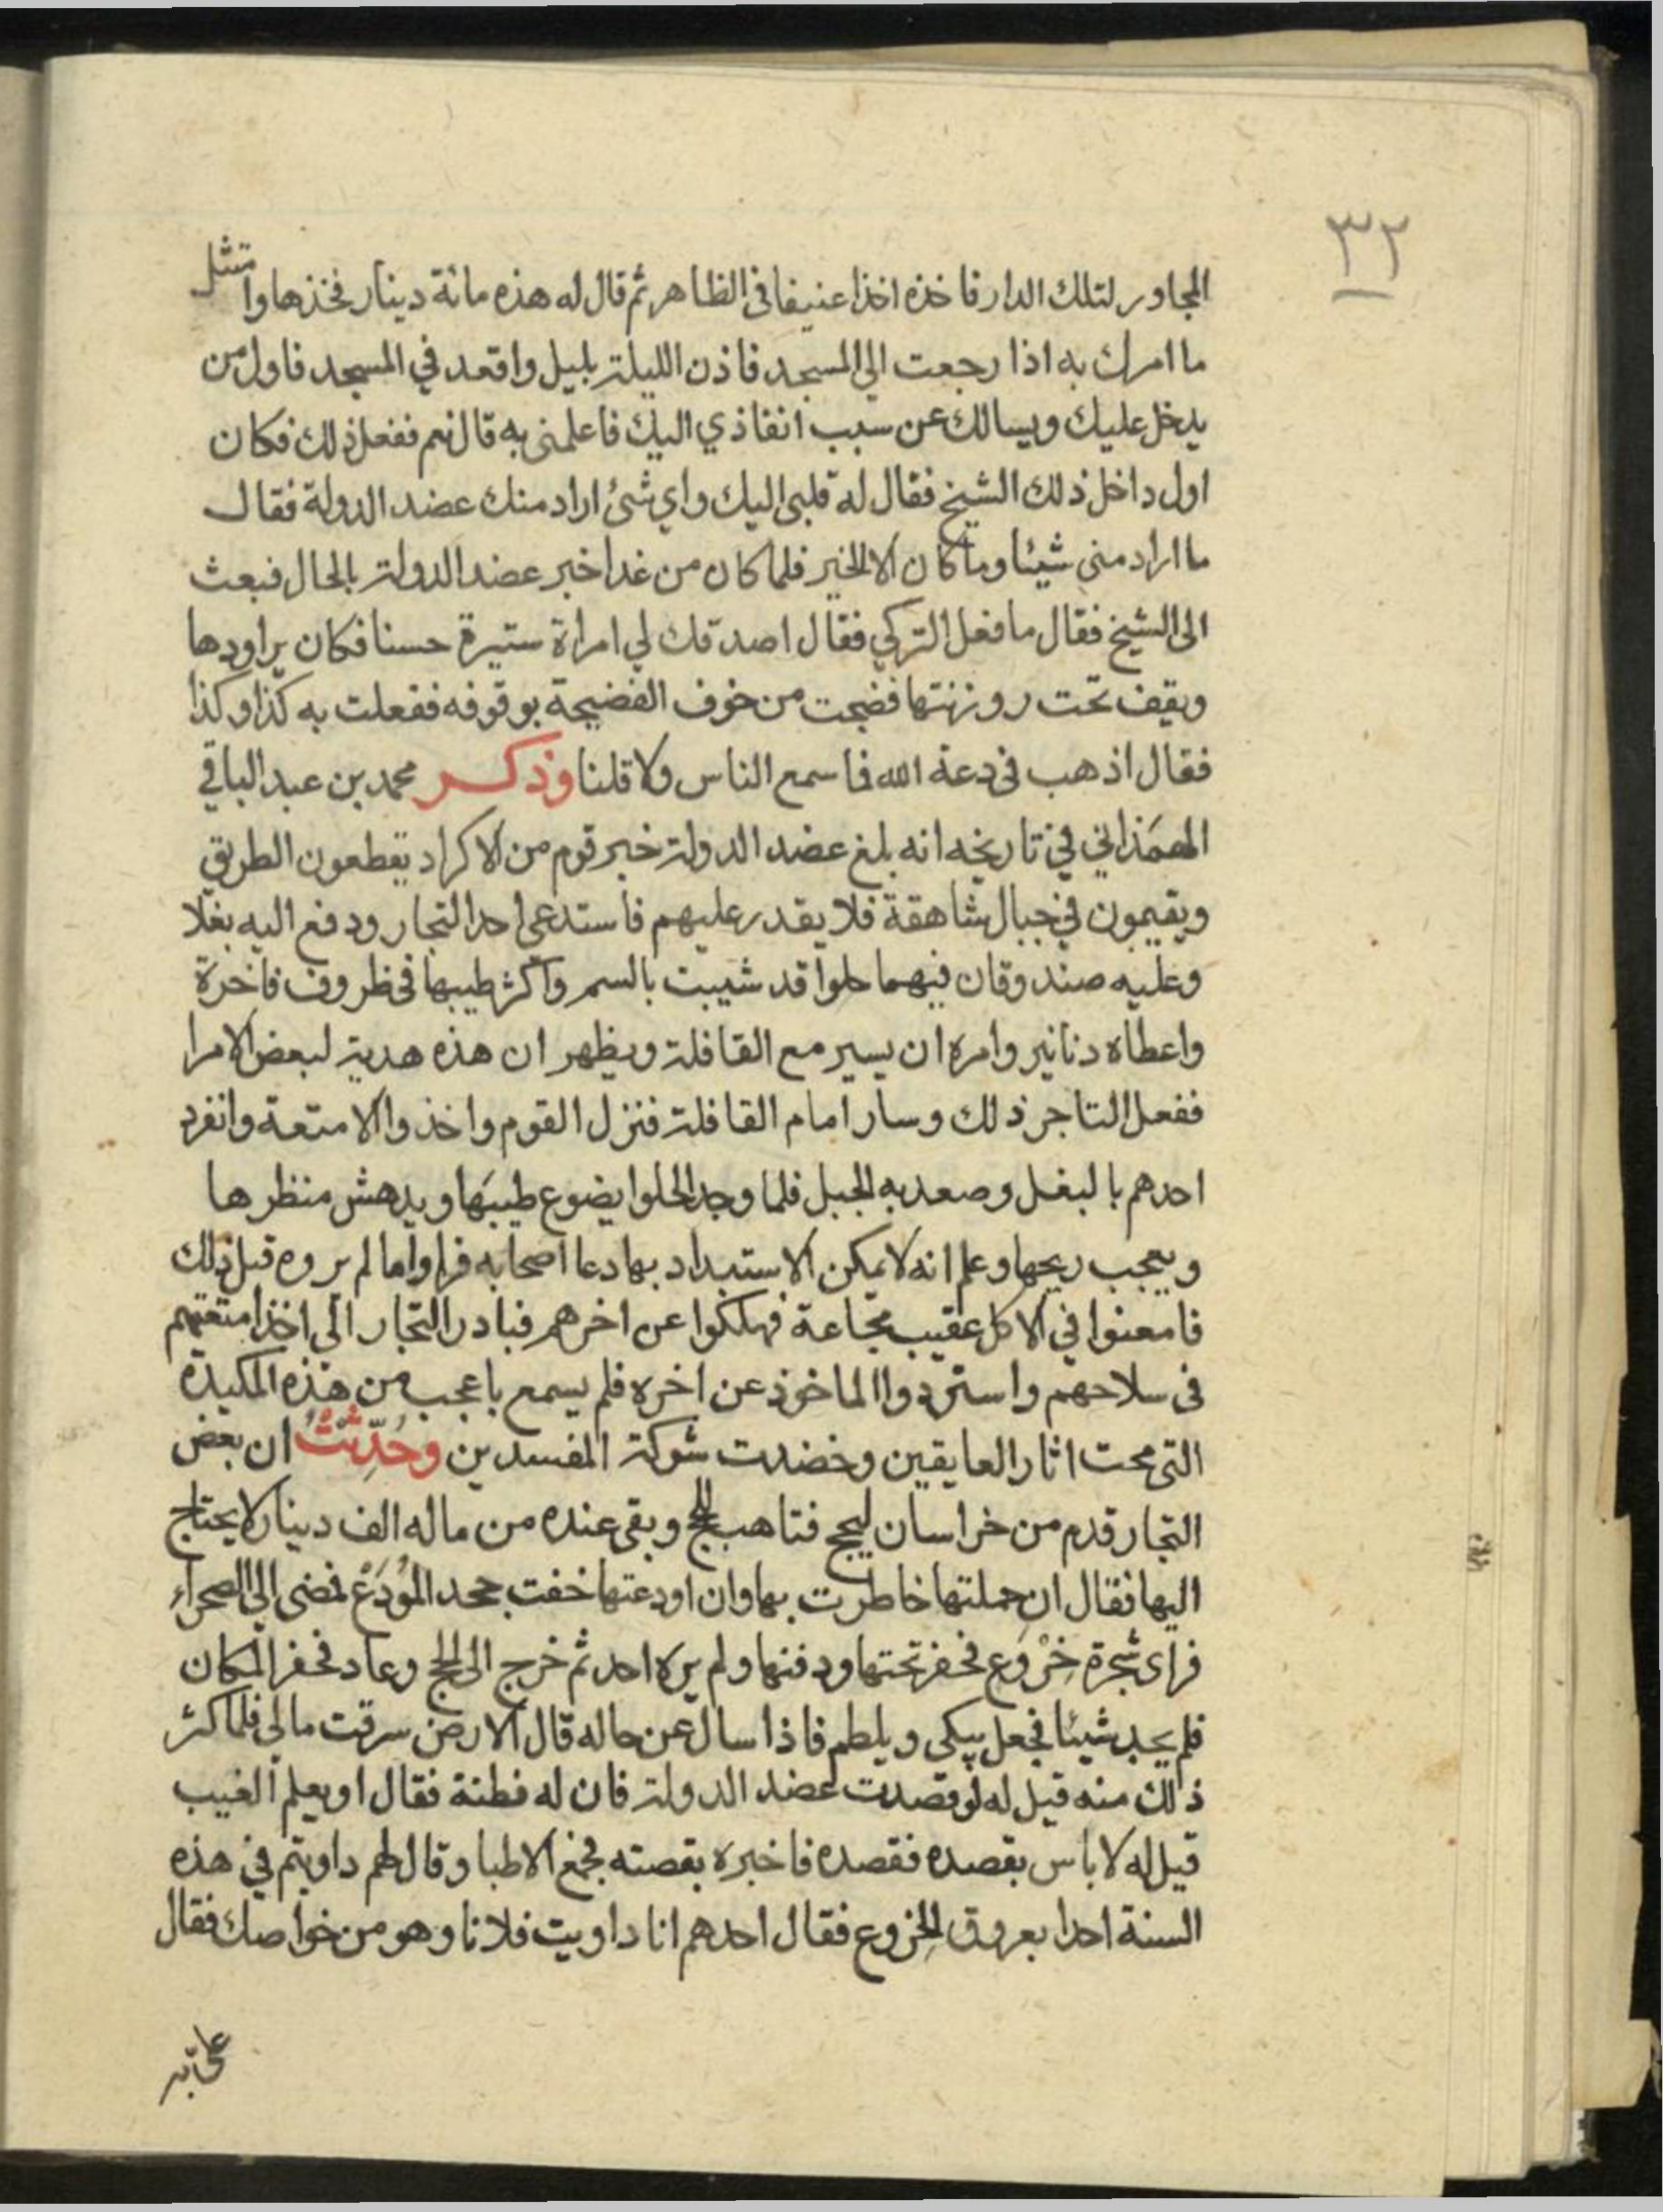 ٣٢
المجاور لتلك الدار فاخذه اخذا عنيفا في الظاهر ثم قال له هذه مائة دينار فخذها وامتثل
ما امرك به اذا رجعت الى المسجد فاذن الليلة بليل واقعد في المسجد فاول من
يدخل عليك ويسالك عن سبب انفاذي اليك فاعلمني به قال نعم ففعل ذلك فكان
اول داخل ذلك الشيخ فقال له قلبي اليك واي شئ اراد منك عضد الدولة فقال
ما اراد مني شيئا وما كان الا الخير فلما كان من غد اخبر عضد الدولة بالحال فبعث
الى الشيخ فقال ما فعل التركي فقال اصدقك لي امراة ستيرة حسنا فكان يراودها
ويقف تحت روزنتها فضجت من خوف الفضيحة بوقوفه ففعلت به كذا وكذا
فقال اذهب في دعة الله فما سمع الناس ولا قلنا وذكر محمد بن عبد الباقي
الهمَذاني في تاريخه انه بلغ عضد الدولة خبر قوم من الاكراد يقطعون الطريق
ويقيمون في جبال شاهقة فلا يقدر عليهم فاستدعى احد التجار ودفع اليه بغلا
وعليه صندوقان فيهما حلوا قد شيبت بالسم واكثر طيبها في ظروف فاخرة
واعطاه دنانير وامره ان يسير مع القافلة ويظهر ان هذه هدية لبعض الامرا
ففعل التاجر ذلك وسار امام القافلة فنزل القوم واخذوا الامتعة وانفرد
احدهم بالبغل وصعد به الجبل فلما وجد الحلوا يضوع طيبَها ويدهش منظرها
ويعجب ريحها وعلم انه لا يمكن الاستبداد بها دعا اصحابه فراوا ما لم يروه قبل ذلك
فامعنوا في الاكل عقيب مجاعة فهلكوا عن اخرهم فبادر التجار الى اخذ امتعتهم
في سلاحهم واستردوا الماخوذ عن اخره فلم يسمع باعجب من هذه المكيدة
التي محت اثار العايقين وخضدت شوكة المفسدين وحُدّثتُ ان بعض
التجار قدم من خراسان ليحج فتاهب للحج وبقي عنده من ماله الف دينار لا يحتاج
اليها فقال ان حملتها خاطرت بها وان اودعتها خفت جحد المؤدَع فمضى الى الصحراء
فراى شجرة خرْوَع فحفر تحتها ودفنها ولم يره احد ثم خرج الى الحج وعاد فحفر المكان
فلم يجد شيئا فجعل يبكي ويلطم فاذا سال عن حاله قال الارض سرقت مالي فلما كثر
ذلك منه قيل له لو قصدت عضد الدولة فان له فطنة فقال او يعلم الغيب
قيل له لا باس بقصده فقصده فاخبره بقصته فجمع الاطبا وقال لهم داويتم في هذه
السنة احدا بعروق الخِروع فقال احدهم انا داويت فلانا وهو من خواصك فقال